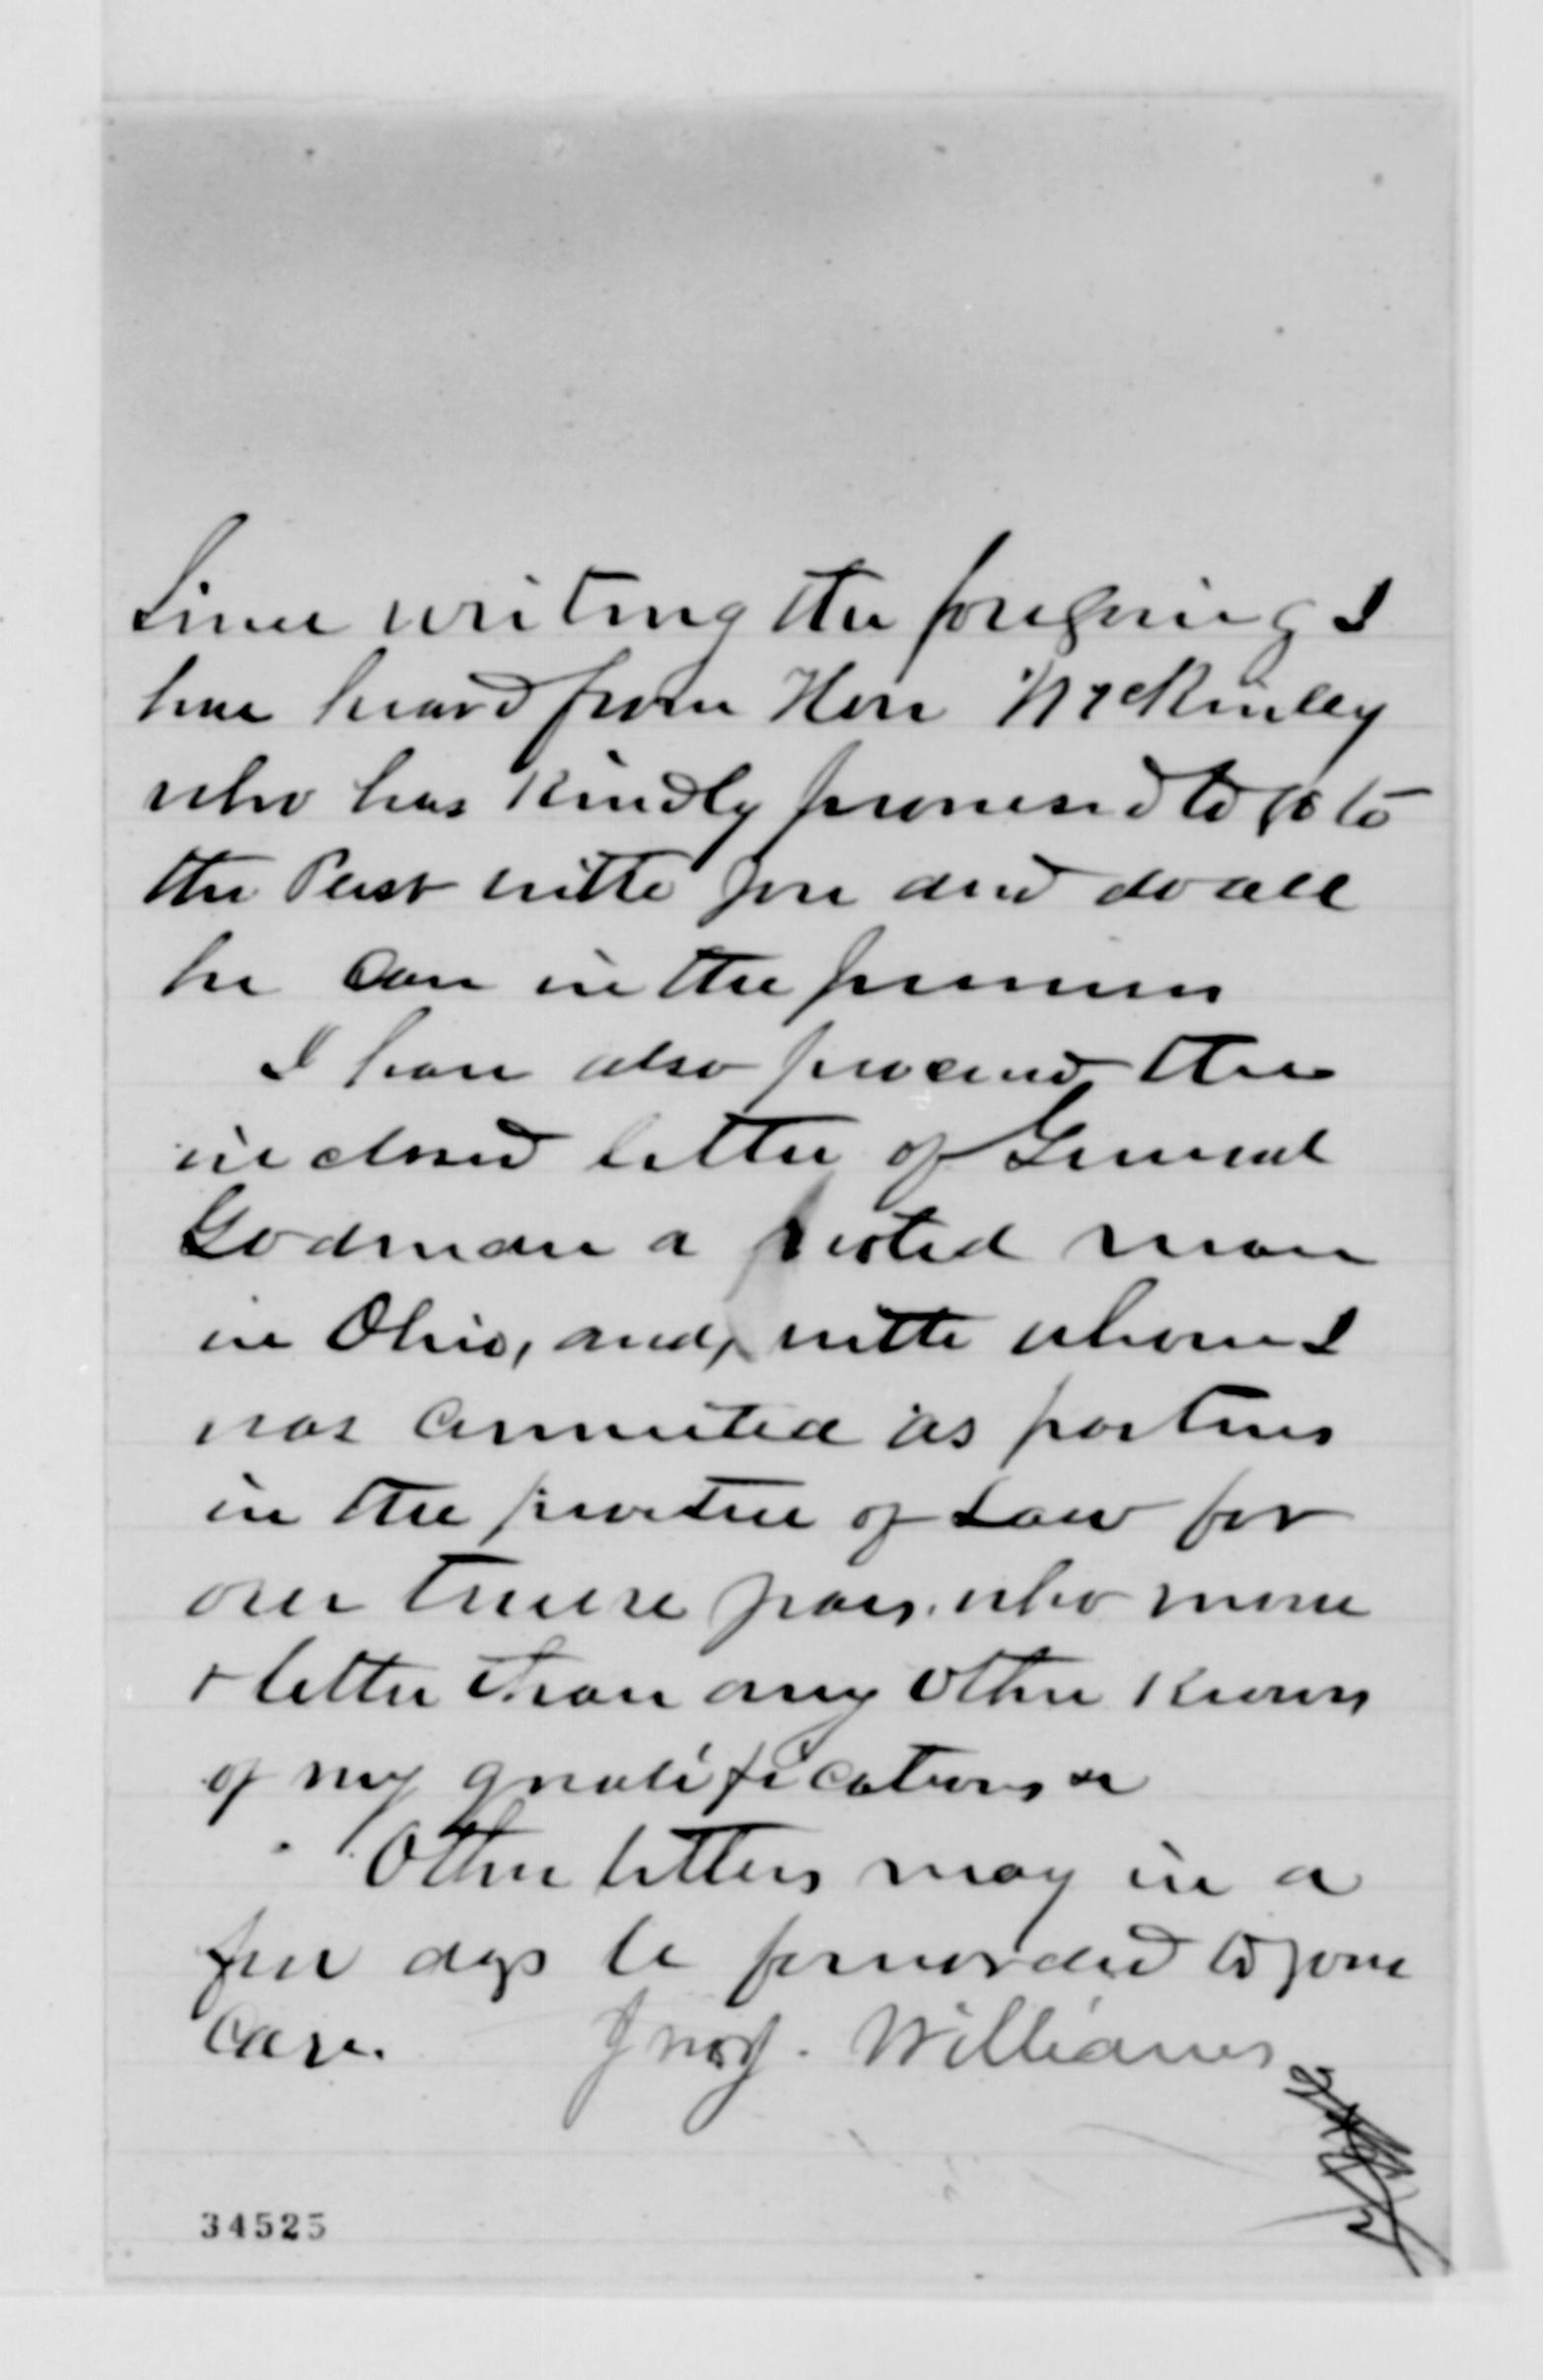 Since writing the foregoing I
have heard from Hon McKinley
who has kindly promised to go to
the Prest with you and do all
he can in the premises
I have also procured the
inclosed letter of General
Godman a noted man
in Ohio, and, with whom I
was connected as partner
in the practice of Law for
over twelve years, who more
+ better than any other knows
of my qualifications &c
Other letters may in a
few days be forwarded to your
care. Jno J. Williams
34525